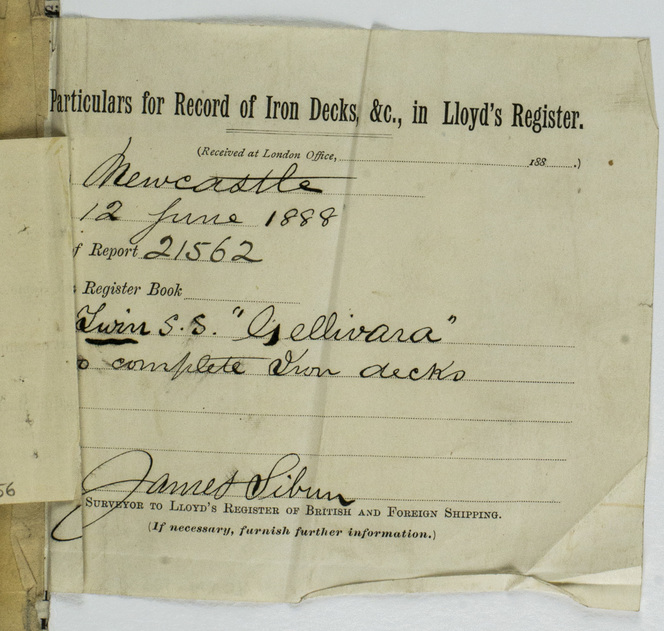 Particulars for Record of Iron Decks, &c., in Lloyd's Register.
(Received at London Office, 188 .)
Newcastle
12 June 1888
f Report 21562
Register Book
Twin S.S. "Gellivara"
o complete Iron decks
James Sibun
Surveyor to Lloyd's Register of British and Foreign Shipping.
(If necessary, furnish further information.)
56